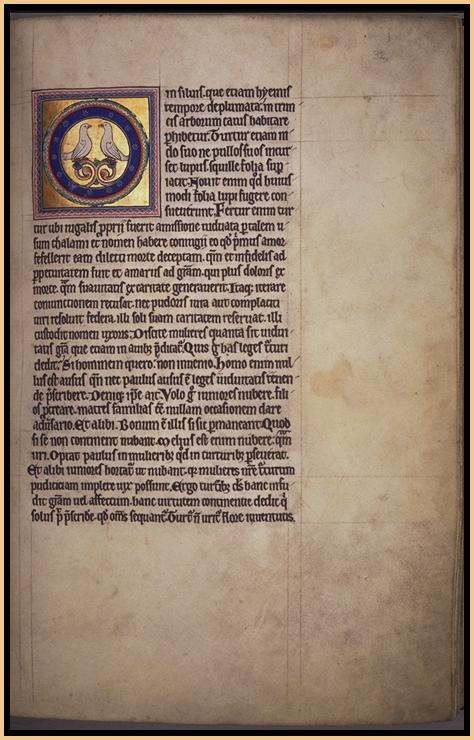 in siluis. que etiam hyemis
tempore deplumata. in trun
cis arborum cauis habitare
phibetur. Turtur etiam ni
do suo ne pullos suos incur
set lupus. squille folia sup
iacit. Nouit enim qd huius
modi folia lupi fugere con
sueuerunt. Fertur enim tur
tur ubi iugalis pprii fuerit amissione uiduata ptalem u
sum thalami et nomen habere coniugii eo qd pmus amor
fefellerit eam dilecti morte deceptam. qm et infidelis ad
ppetuitatem fuit et amarus ad gram. qui plus doloris ex
morte. qm suauitatis ex caritate generauerit. Itaq; iterare
coniunctionem recusat. nec pudoris iura aut complaciti
uiri resoluit federa. illi soli suam caritatem reseruat. illi
custodit nomen uxoris. Discite mulieres quanta sit uidui
tatis gra que etiam in auib; pdicat. Quis g has leges turturi
dedit. Si hominem quero. non inuenio. Homo enim nul
lus est ausus qm nec paulus ausus e leges uiduitatis tenen
de pscribere. Deniq; ipse ait. Volo g iuniores nubere. fili
os pcreare. matres familias ee. nullam occasionem dare
aduersario. Et alibi. Bonum e illis si sic pmaneant. Quod
si se non continent nubant. melius est enim nubere. qm
uri. Optat paulus in mulierib; qd in turturib; pseuerat.
Et alibi iuniores hortat ut nubant. q mulieres nre turturum
pudiciciam implere uix possunt. Ergo turturib; ds hanc infu
dit gram uel affectum. hanc uirtutem continentie dedit. q
solus p pscribe. qd oms sequant. Turtur n urit flore iuuentutis.